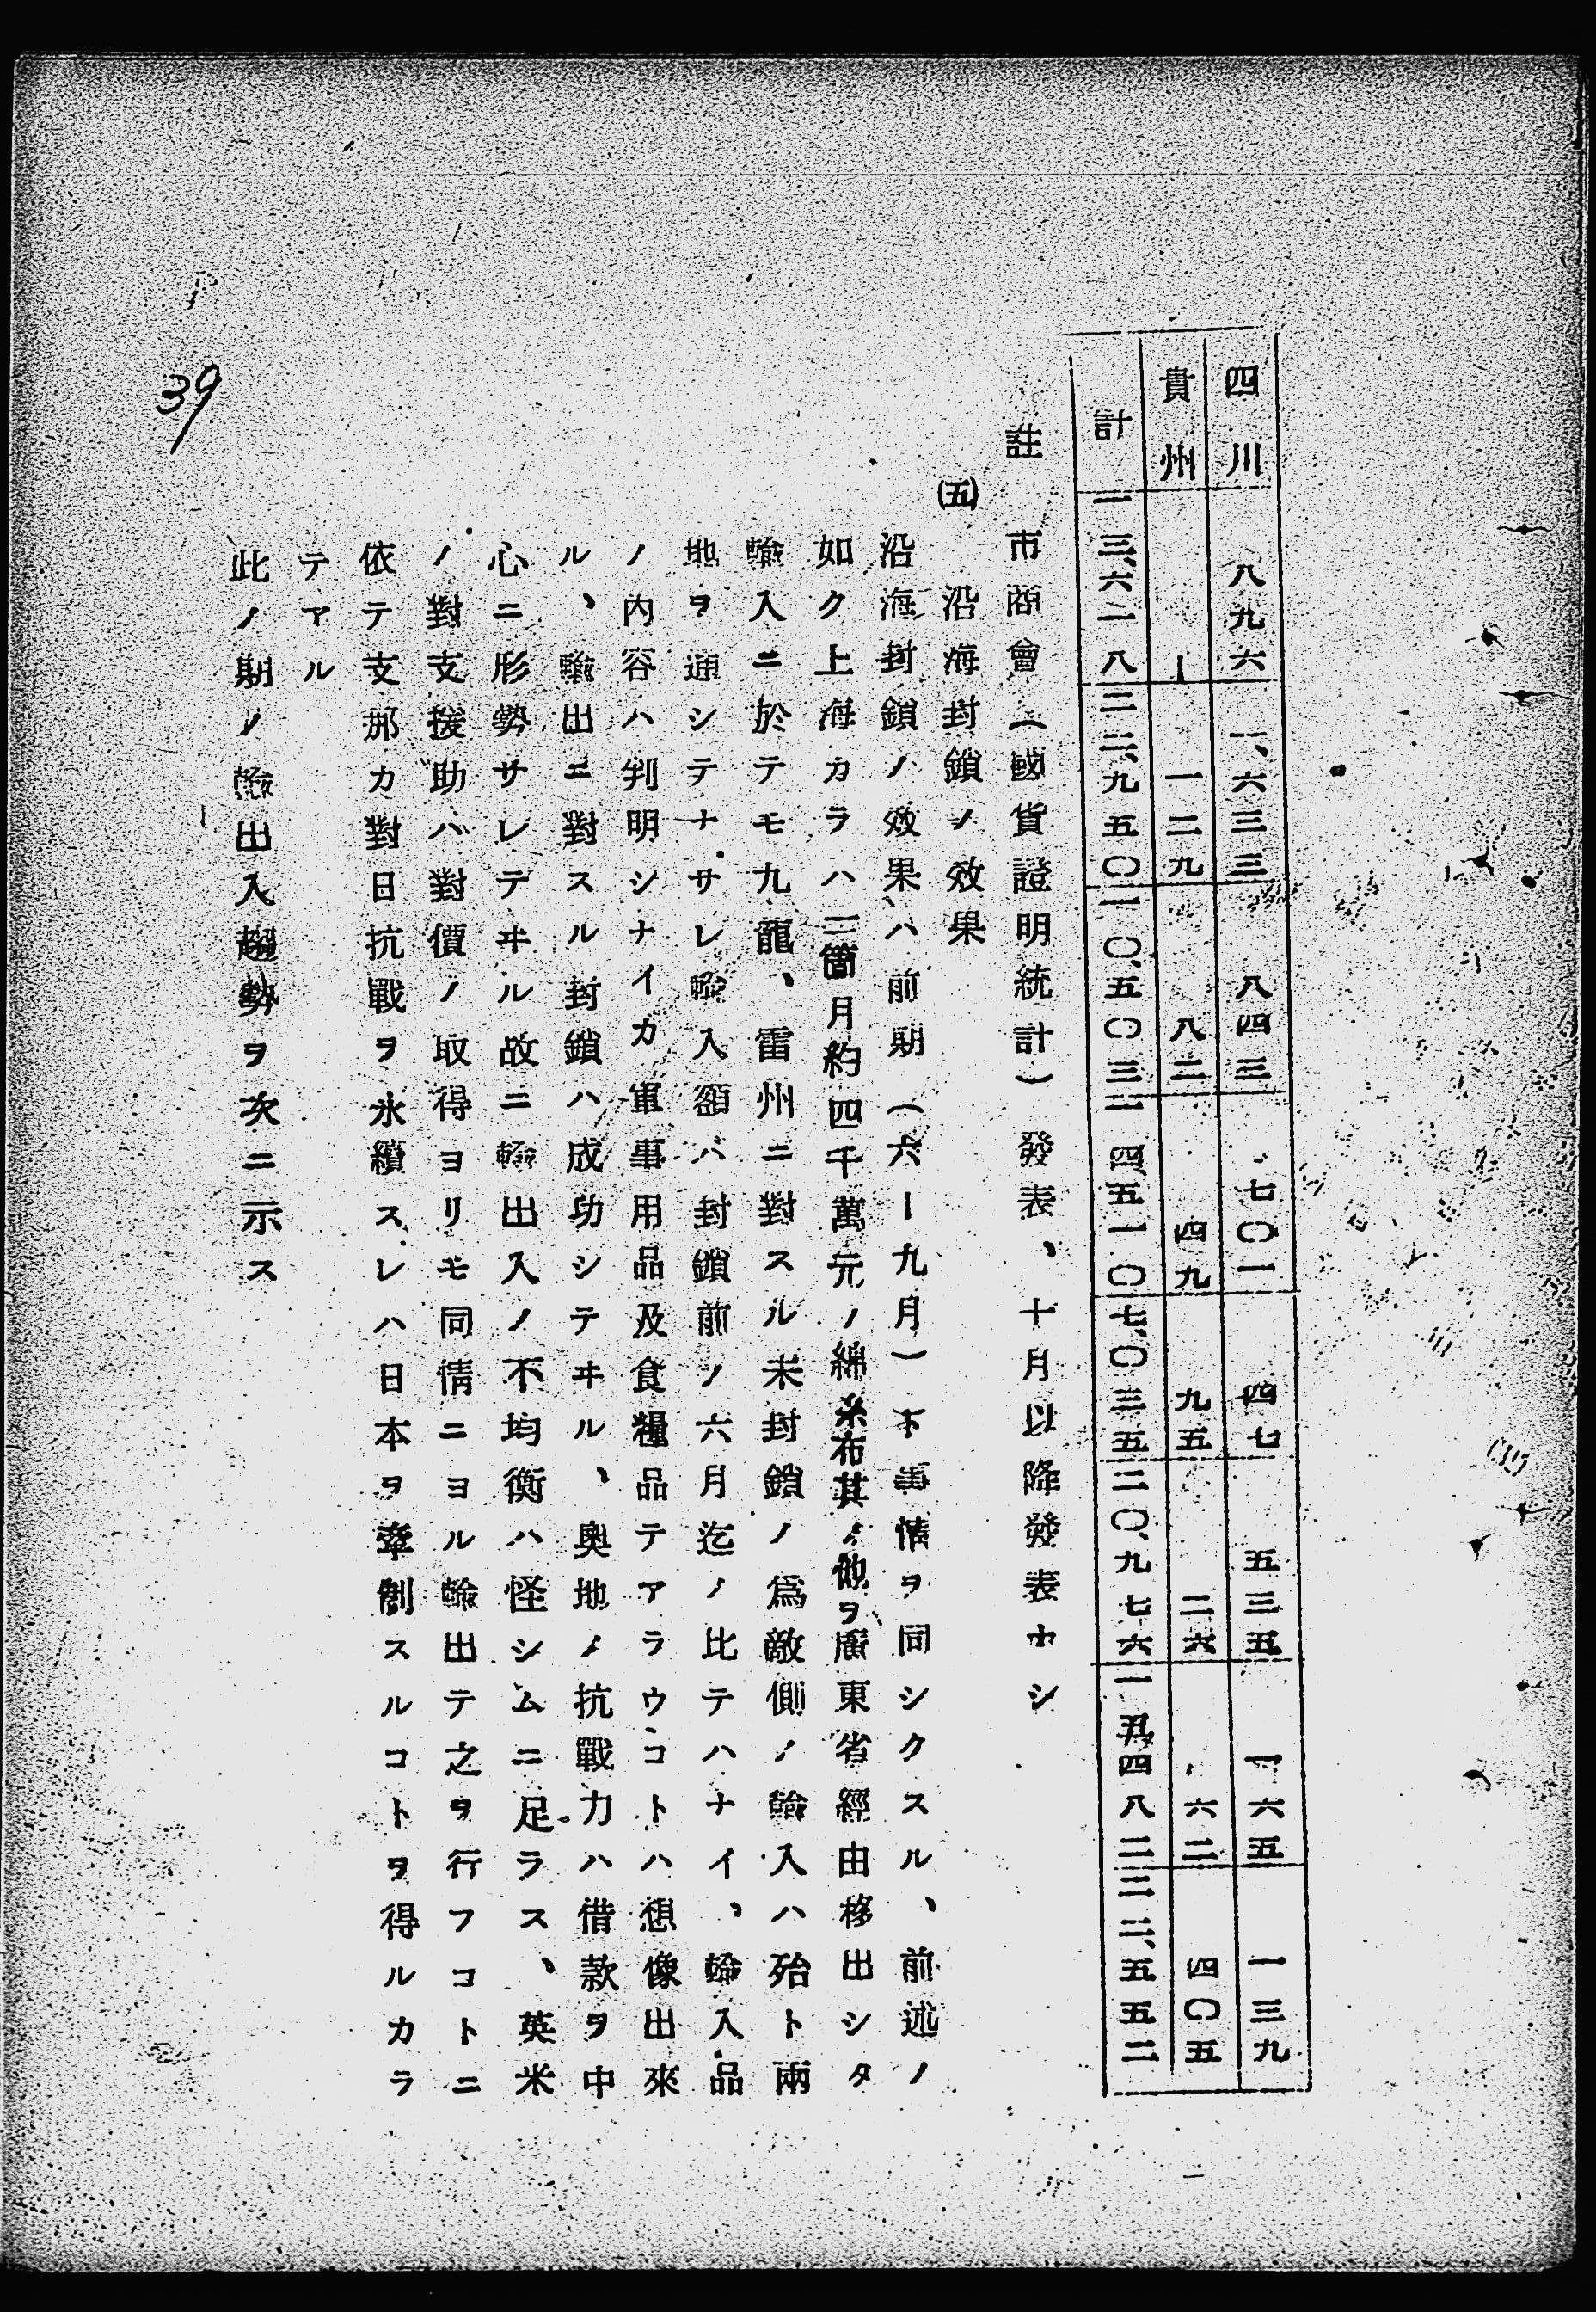 四川　八九六　一、六三三　八四三　七〇一　四七　五三五　一六五　一三九
貴州　ー　一二九　八二　四九　九五　二六　六二　四〇五
計　一三、六二八　二二、九五〇　一〇、五〇三　二四、五一〇　七、〇三五　二〇、九七六　一五、四八二　三二、五五二
註　市商會（國貨證明統計）發表、十月以降發表ナシ
(五)　沿海封鎖ノ效果
沿海封鎖ノ效果ハ前期（六ー九月）ト事情ヲ同シクスル、前述ノ
如ク上海カラハ三箇月約四千萬元ノ綿糸布其ノ他ヲ廣東省經由移出シタ
輸入ニ於テモ九龍、雷州ニ對スル未封鎖ノ爲敵側ノ輸入ハ殆ト兩
地ヲ通シテナサレ輸入額ハ封鎖前ノ六月迄ノ比テハナイ、輸入品
ノ內容ハ判明シナイカ軍事用品及食糧品テアラウコトハ想像出來
ル、輸出ニ對スル封鎖ハ成功シテヰル、奧地ノ抗戰力ハ借款ヲ中
心ニ形勢サレテヰル故ニ輸出入ノ不均衡ハ怪シムニ足ラス、英米
ノ對支援助ハ對價ノ取得ヨリモ同情ニヨル輸出テ之ヲ行フコトニ
依テ支那カ對日抗戰ヲ永續スレハ日本ヲ牽制スルコトヲ得ルカラ
テアル
此ノ期ノ輸出入趨勢ヲ次ニ示ス
39